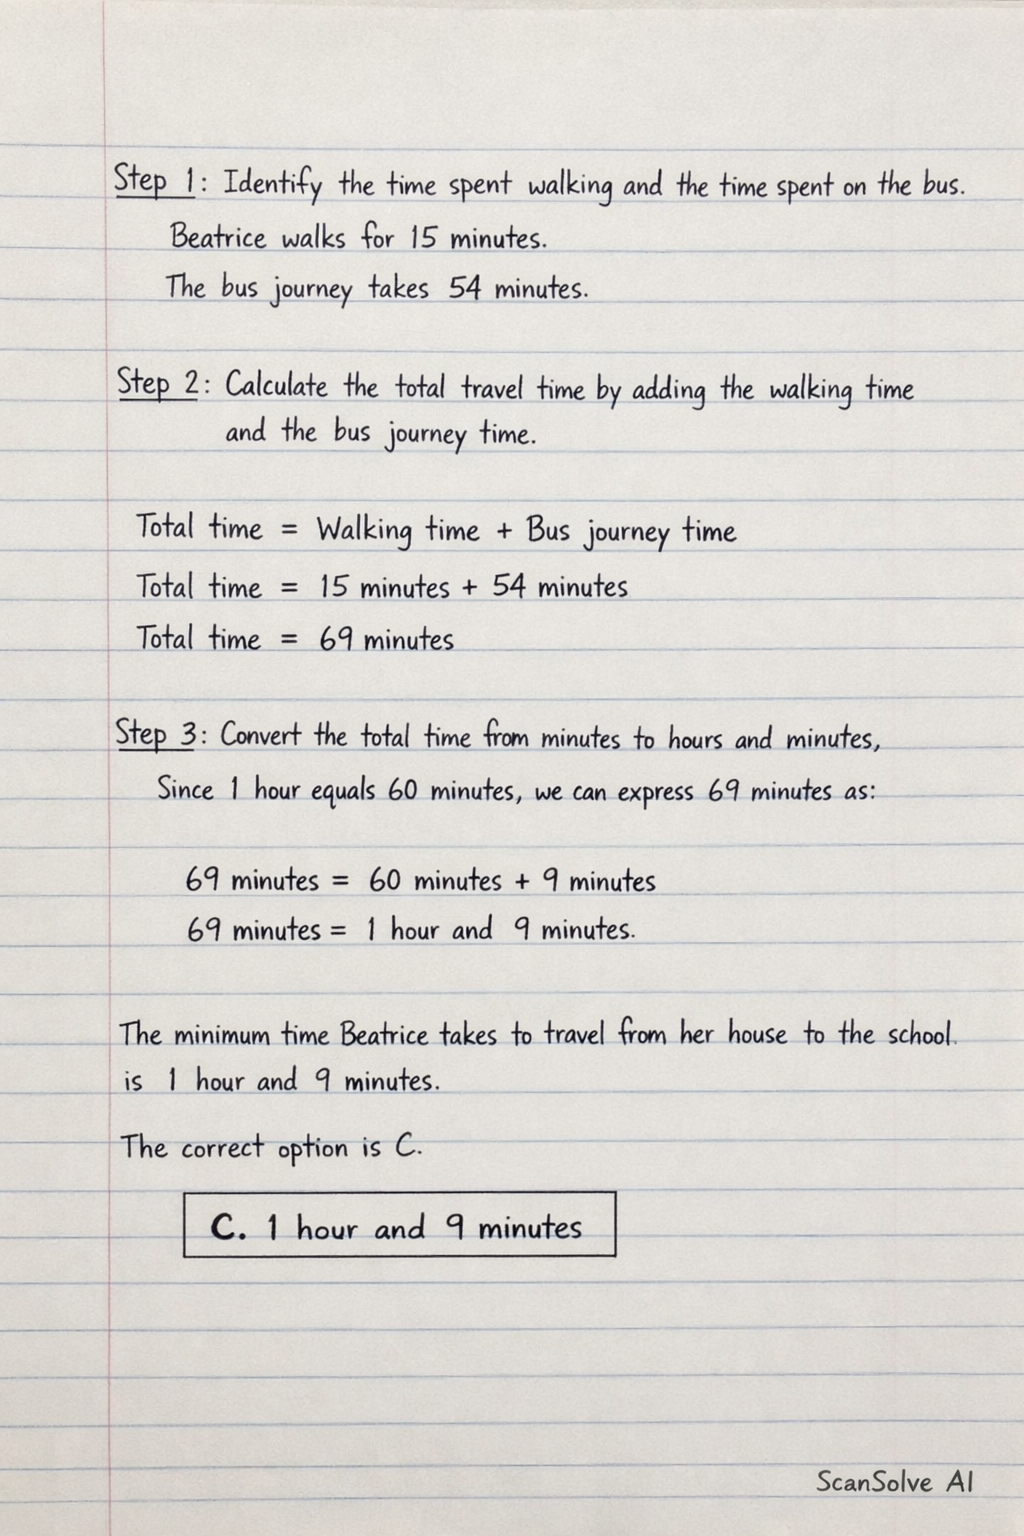 Step 1: Identify the time spent walking and the time spent on the bus.
Beatrice walks for 15 minutes.
The bus journey takes 54 minutes.
Step 2: Calculate the total travel time by adding the walking time
and the bus journey time.
Total time = Walking time + Bus journey time
Total time = 15 minutes + 54 minutes
Total time = 69 minutes
Step 3: Convert the total time from minutes to hours and minutes,
Since 1 hour equals 60 minutes, we can express 69 minutes as:
69 minutes = 60 minutes + 9 minutes
69 minutes = 1 hour and 9 minutes.
The minimum time Beatrice takes to travel from her house to the school.
is 1 hour and 9 minutes.
The correct option is C.
C. 1 hour and 9 minutes
ScanSolve AI